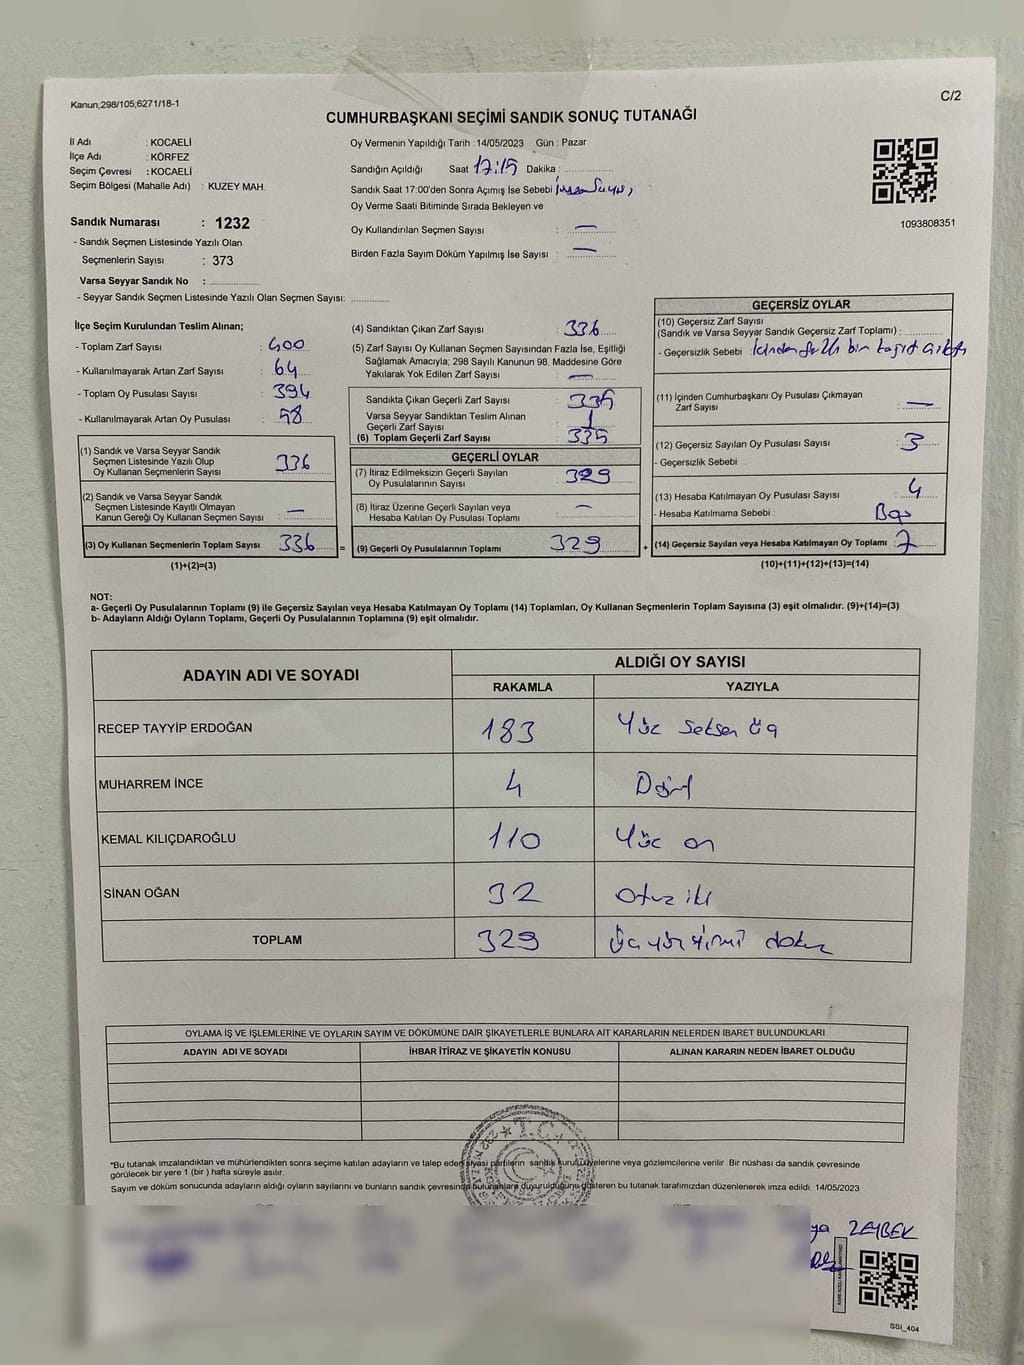 Kanun;298/105;6271/18-1
C/2
CUMHURBAŞKANI SEÇİMİ SANDIK SONUÇ TUTANAĞI
İl Adı : KOCAELİ
İlçe Adı : KÖRFEZ
Seçim Çevresi : KOCAELİ
Seçim Bölgesi (Mahalle Adı) : KUZEY MAH.
Sandık Numarası : 1232
- Sandık Seçmen Listesinde Yazılı Olan
Seçmenlerin Sayısı : 373
Varsa Seyyar Sandık No :
- Seyyar Sandık Seçmen Listesinde Yazılı Olan Seçmen Sayısı:
Oy Vermenin Yapıldığı Tarih : 14/05/2023 Gün : Pazar
Sandığın Açıldığı Saat 17:15 Dakika :
Sandık Saat 17:00'den Sonra Açımış İse Sebebi
Oy Verme Saati Bitiminde Sırada Bekleyen ve
Oy Kullandırılan Seçmen Sayısı : —
Birden Fazla Sayım Döküm Yapılmış İse Sayısı : —
1093808351
İlçe Seçim Kurulundan Teslim Alınan;
- Toplam Zarf Sayısı : 400
- Kullanılmayarak Artan Zarf Sayısı : 64
- Toplam Oy Pusulası Sayısı : 394
- Kullanılmayarak Artan Oy Pusulası : 58
(1) Sandık ve Varsa Seyyar Sandık
Seçmen Listesinde Yazılı Olup
Oy Kullanan Seçmenlerin Sayısı : 336
(2) Sandık ve Varsa Seyyar Sandık
Seçmen Listesinde Kayıtlı Olmayan
Kanun Gereği Oy Kullanan Seçmen Sayısı : —
(3) Oy Kullanan Seçmenlerin Toplam Sayısı : 336
(1)+(2)=(3)
(4) Sandıktan Çıkan Zarf Sayısı : 336
(5) Zarf Sayısı Oy Kullanan Seçmen Sayısından Fazla İse, Eşitliği
Sağlamak Amacıyla; 298 Sayılı Kanunun 98. Maddesine Göre
Yakılarak Yok Edilen Zarf Sayısı : —
Sandıkta Çıkan Geçerli Zarf Sayısı : 335
Varsa Seyyar Sandıktan Teslim Alınan
Geçerli Zarf Sayısı :
(6) Toplam Geçerli Zarf Sayısı : 335
GEÇERLİ OYLAR
(7) İtiraz Edilmeksizin Geçerli Sayılan
Oy Pusulalarının Sayısı : 329
(8) İtiraz Üzerine Geçerli Sayılan veya
Hesaba Katılan Oy Pusulası Toplamı : —
= (9) Geçerli Oy Pusulalarının Toplamı : 329
GEÇERSİZ OYLAR
(10) Geçersiz Zarf Sayısı
(Sandık ve Varsa Seyyar Sandık Geçersiz Zarf Toplamı) :
- Geçersizlik Sebebi : bir kağıt çıktı
(11) İçinden Cumhurbaşkanı Oy Pusulası Çıkmayan
Zarf Sayısı : —
(12) Geçersiz Sayılan Oy Pusulası Sayısı : 3
- Geçersizlik Sebebi :
(13) Hesaba Katılmayan Oy Pusulası Sayısı : 4
- Hesaba Katılmama Sebebi : Boş
+ (14) Geçersiz Sayılan veya Hesaba Katılmayan Oy Toplamı : 7
(10)+(11)+(12)+(13)=(14)
NOT:
a- Geçerli Oy Pusulalarının Toplamı (9) ile Geçersiz Sayılan veya Hesaba Katılmayan Oy Toplamı (14) Toplamları, Oy Kullanan Seçmenlerin Toplam Sayısına (3) eşit olmalıdır. (9)+(14)=(3)
b- Adayların Aldığı Oyların Toplamı, Geçerli Oy Pusulalarının Toplamına (9) eşit olmalıdır.
ADAYIN ADI VE SOYADI
ALDIĞI OY SAYISI
RAKAMLA YAZIYLA
RECEP TAYYİP ERDOĞAN 183 Yüz Seksen üç
MUHARREM İNCE 4 Dört
KEMAL KILIÇDAROĞLU 110 Yüz on
SİNAN OĞAN 32 Otuz iki
TOPLAM 329 Üç yüz yirmi dokuz
OYLAMA İŞ VE İŞLEMLERİNE VE OYLARIN SAYIM VE DÖKÜMÜNE DAİR ŞİKAYETLERLE BUNLARA AİT KARARLARIN NELERDEN İBARET BULUNDUKLARI
ADAYIN ADI VE SOYADI İHBAR İTİRAZ VE ŞİKAYETİN KONUSU ALINAN KARARIN NEDEN İBARET OLDUĞU
T.C.
*Bu tutanak imzalandıktan ve mühürlendikten sonra seçime katılan adayların ve talep eden siyasi partilerin sandık kurulu üyelerine veya gözlemcilerine verilir. Bir nüshası da sandık çevresinde
görülecek bir yere 1 (bir ) hafta süreyle asılır.
Sayım ve döküm sonucunda adayların aldığı oyların sayılarını ve bunların sandık çevresinde bulunanlara duyurulduğunu gösteren bu tutanak tarafımızdan düzenlenerek imza edildi. 14/05/2023
ya ZEYBEK
SSI_404